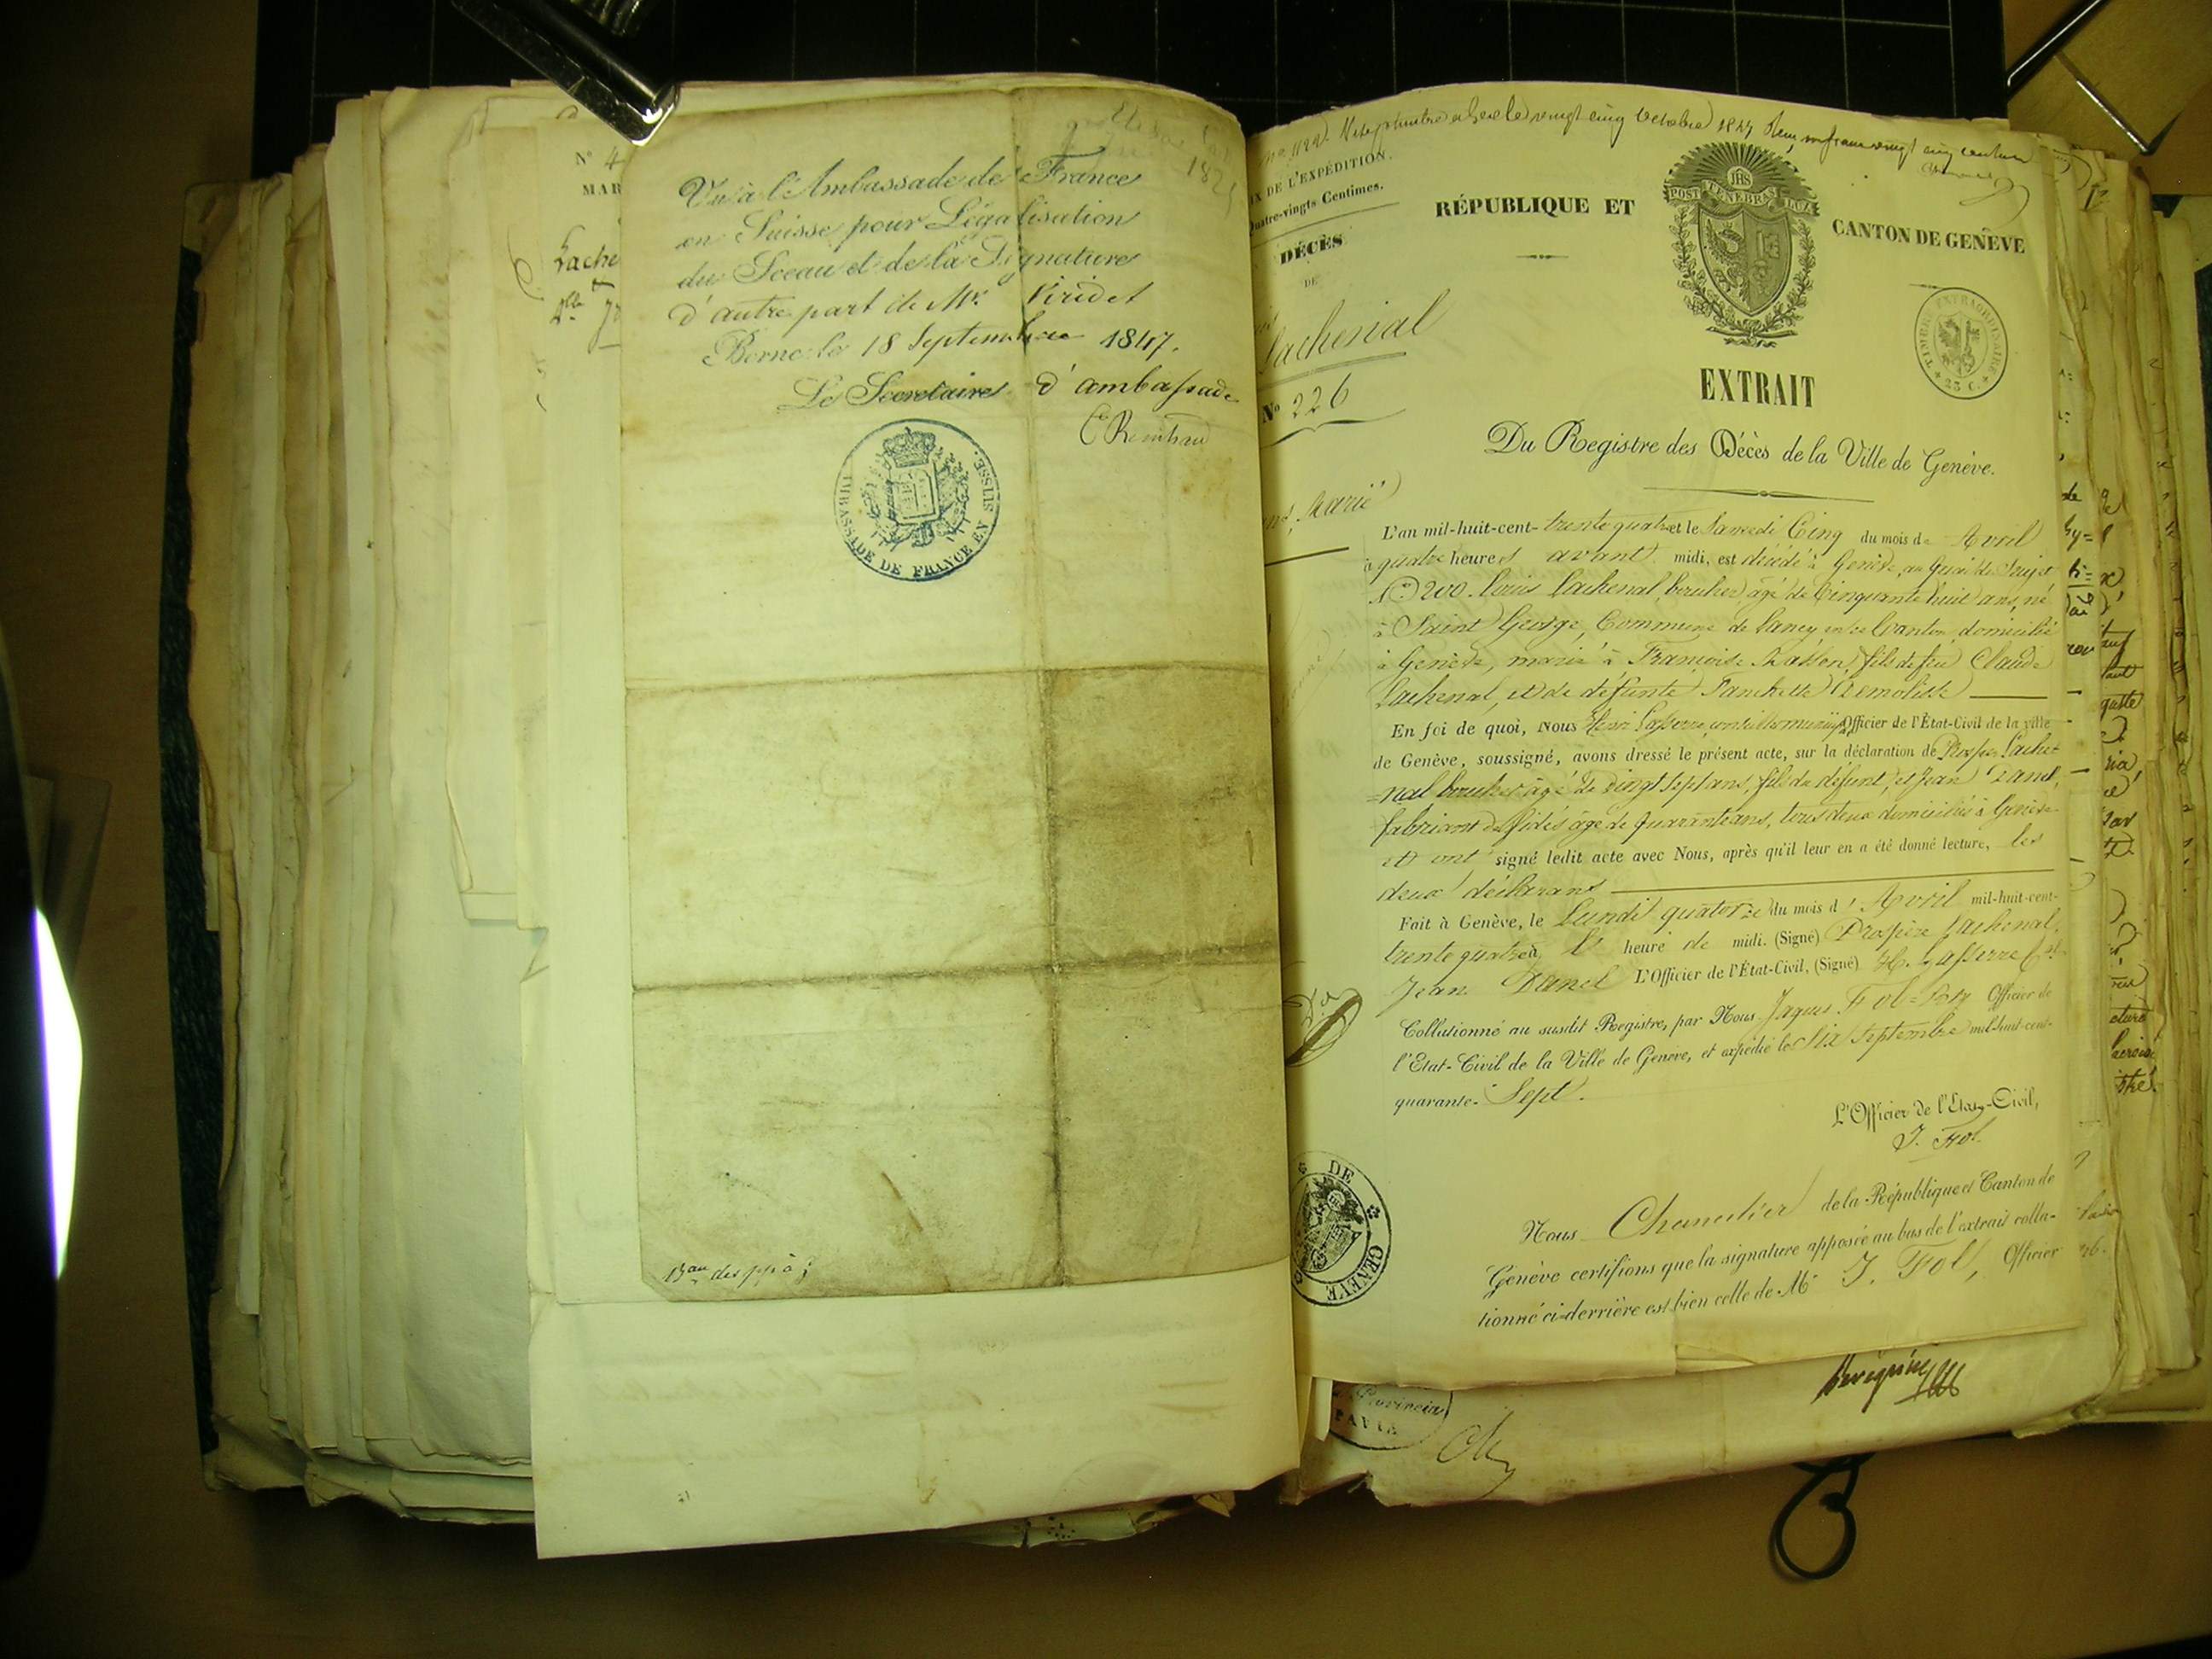 N° 4
MAR
Lache
Vu à l'Ambassade de France
en Suisse pour Légalisation
du Sceau et de la Signature
d'autre part de Mr. Viridet
Berne le 18 Septembre 1847.
Le Secretaire d'ambassade
AMBASSADE DE FRANCE EN SUISSE.
vingt cinq octobre
IX DE L'EXPÉDITION.
Quatre-vingts Centimes.
DÉCÈS
DE
Lachenal
N° 226
Marié
RÉPUBLIQUE ET
POST TENEBRAS LUX
JHS
CANTON DE GENÈVE
TIMBRE EXTRAORDINAIRE
* 25 C. *
EXTRAIT
Du Registre des Décès de la Ville de Genève.
L'an mil-huit-cent-trente quatre et le Samedi Cinq du mois d'Avril
à quatre heures avant midi, est décédé à Genève, au Quai du Seujet
N° 200. Louis Lachenal, boucher âgé de Cinquante huit ans, né
à Saint George, Commune de Lancy en ce Canton, domicilié
à Genève, marié à Françoise fils de feu Claude
Lachenal, et de défunte
En foi de quoi, Nous Henri Lasserre, conseiller municipal, Officier de l'État-Civil de la ville
de Genève, soussigné, avons dressé le présent acte, sur la déclaration de Prosper Lache-
=nal boucher âgé de vingt sept ans, fils du défunt, et Jean Danel,
fabricant de fidés âgé de quarante ans, tous deux domiciliés à Genève
et ont signé ledit acte avec Nous, après qu'il leur en a été donné lecture, les
deux déclarans
Fait à Genève, le Lundi quatorze du mois d'Avril mil-huit-cent-
trente quatre à heure de midi. (Signé) Prosper Lachenal,
Jean Danel L'Officier de l'État-Civil, (Signé) H. Lasserre
Collationné au susdit Registre, par Nous Jaques Fol Officier de
l'État-Civil de la Ville de Genève, et expédié le Six Septembre mil-huit-cent-
quarante-Sept.
L'Officier de l'État-Civil,
J. Fol.
DE * GENEVE
Nous Chancelier de la République et Canton de
Genève certifions que la signature apposée au bas de l'extrait colla-
tionné ci-derrière est bien celle de Mr J. Fol, Officier
Provincia
PAVIA